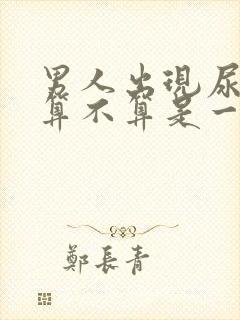 男人出現尿
算不算是一
鄭長青